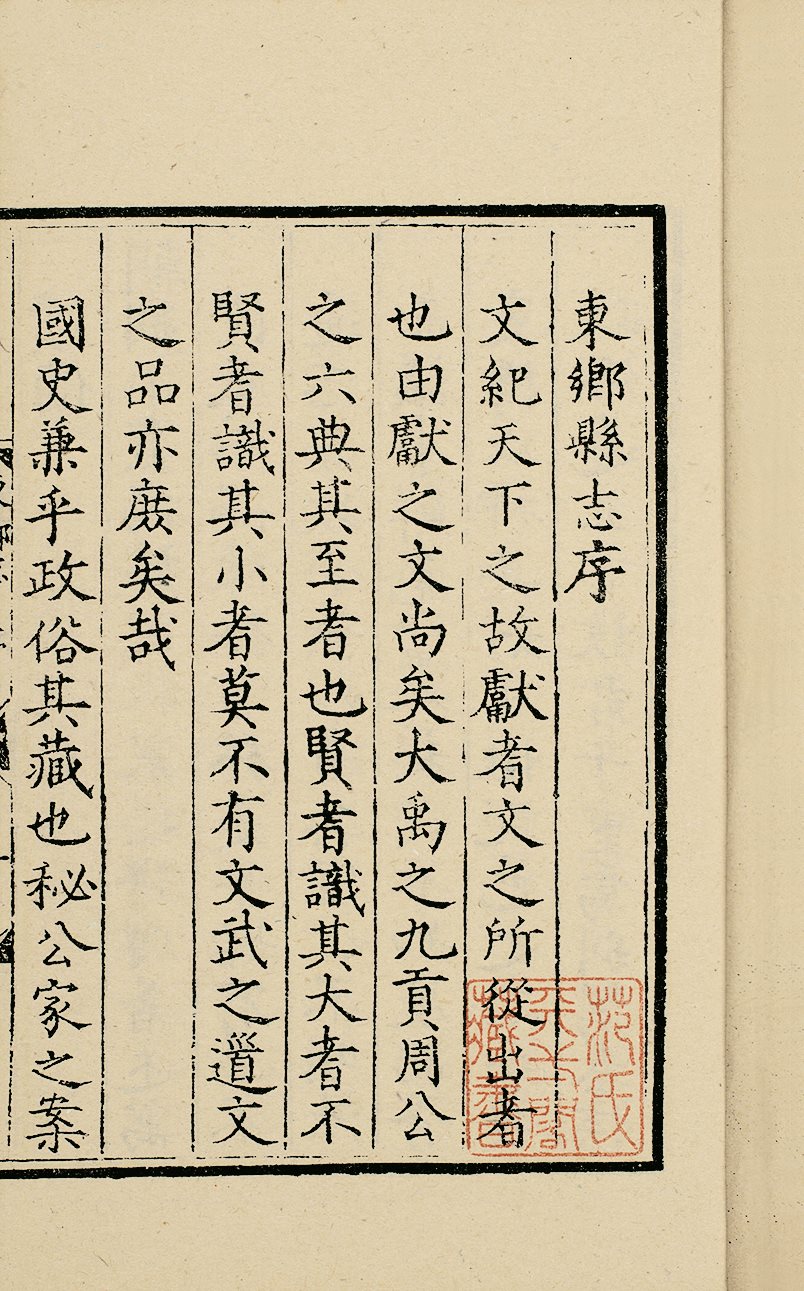 東鄉縣志序
文紀天下之故獻者文之所從出者
也由獻之文尚矣大禹之九貢周公
之六典其至者也賢者識其大者不
賢者識其小者莫不有文武之道文
之品亦庶矣哉
國史兼乎政俗其藏也秘公家之案
范氏
天一閣
藏書